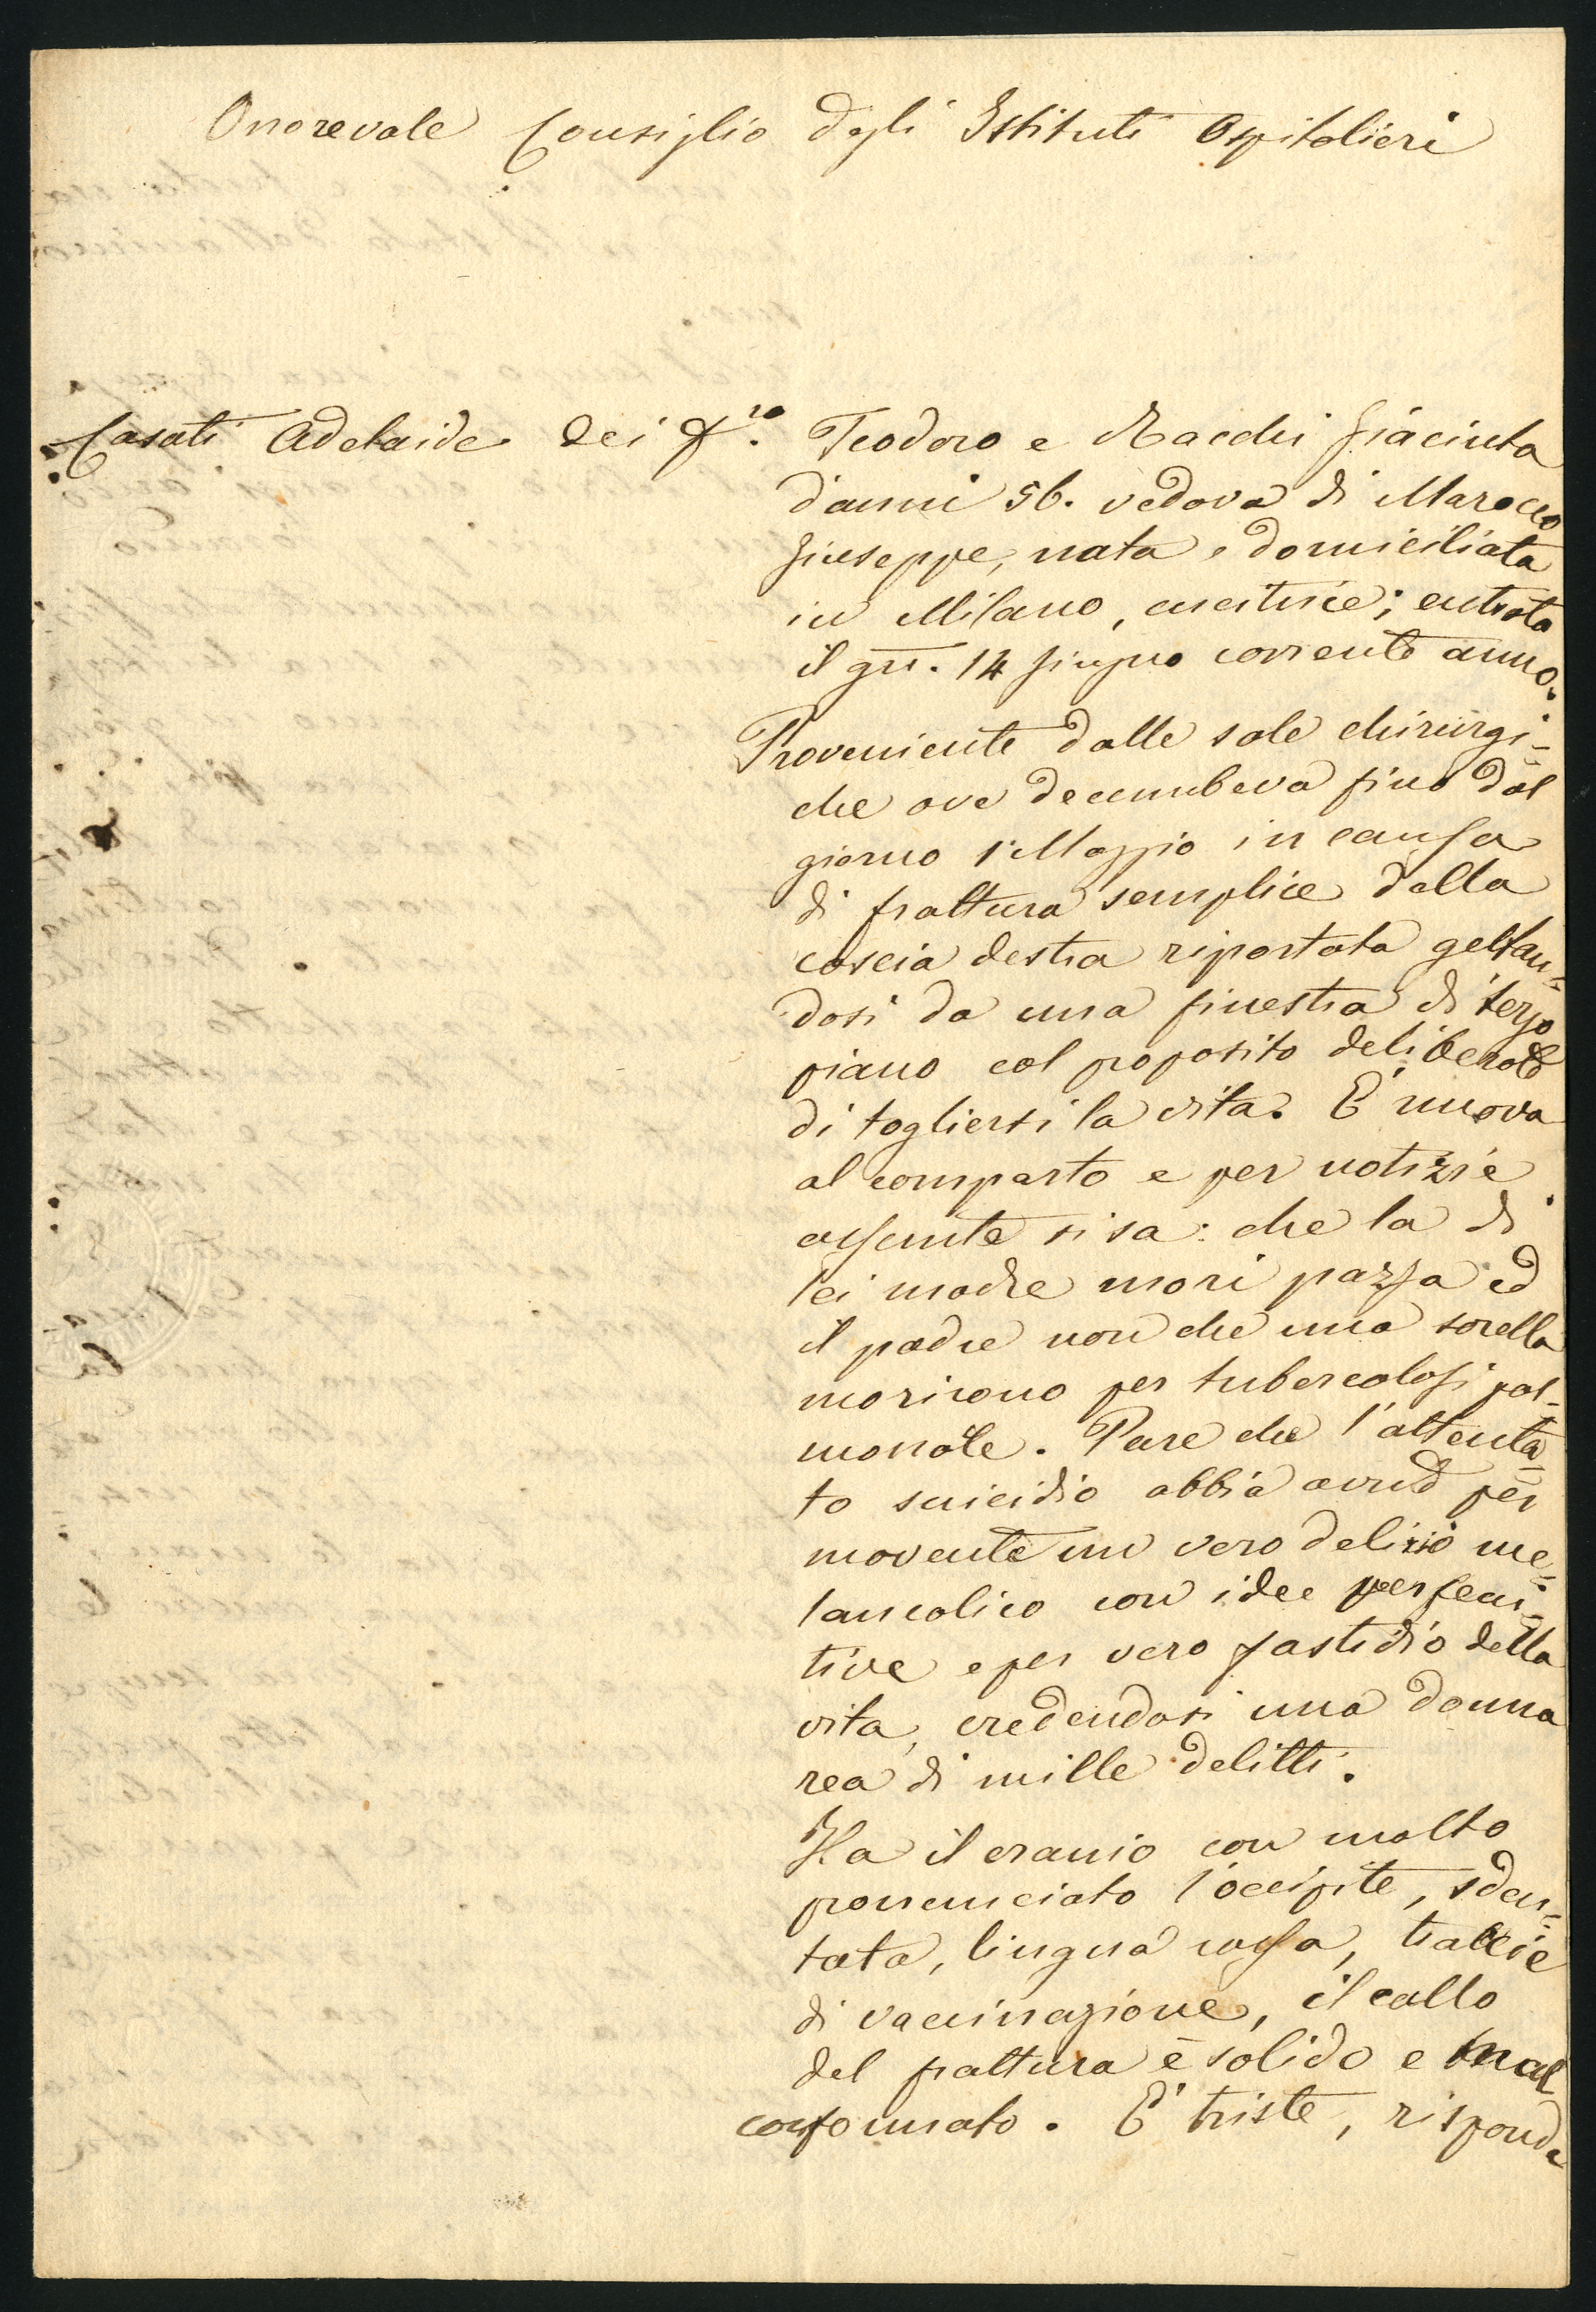 Onorevole Consiglio degli Istituti Ospitalieri
Casati Adelaide dei fr.
Teodoro e Racchi Giacinta
d'anni 56. vedova di Marocco
Giuseppe, nata e domiciliata
in Milano, cucitrice; entrata
il gn. 14 Giugno corrente anno.
Proveniente dalle sale chirurgi-
che ove decumbeva fino dal
giorno 1° Maggio in causa
di frattura semplice della
coscia destra riportata gettan-
dosi da una finestra di terzo
piano col proposito deliberato
di togliersi la vita. E' nuova
al comparto e per notizie
assunte si sa: che la di
lei madre morì pazza ed
il padre non che una sorella
morirono per tubercolosi pol-
monale. Pare che l'attenta-
to suicidio abbia avuto per
movente un vero delirio me-
lancolico con idee persecu-
tive e per vero fastidio della
vita, credendosi una donna
rea di mille delitti.
Ha il cranio con molto
pronunciato l'occipite, sden-
tata, lingua rossa, traccie
di vaccinazione, il callo
del frattura è solido e mal
conformato. E' triste, risponde